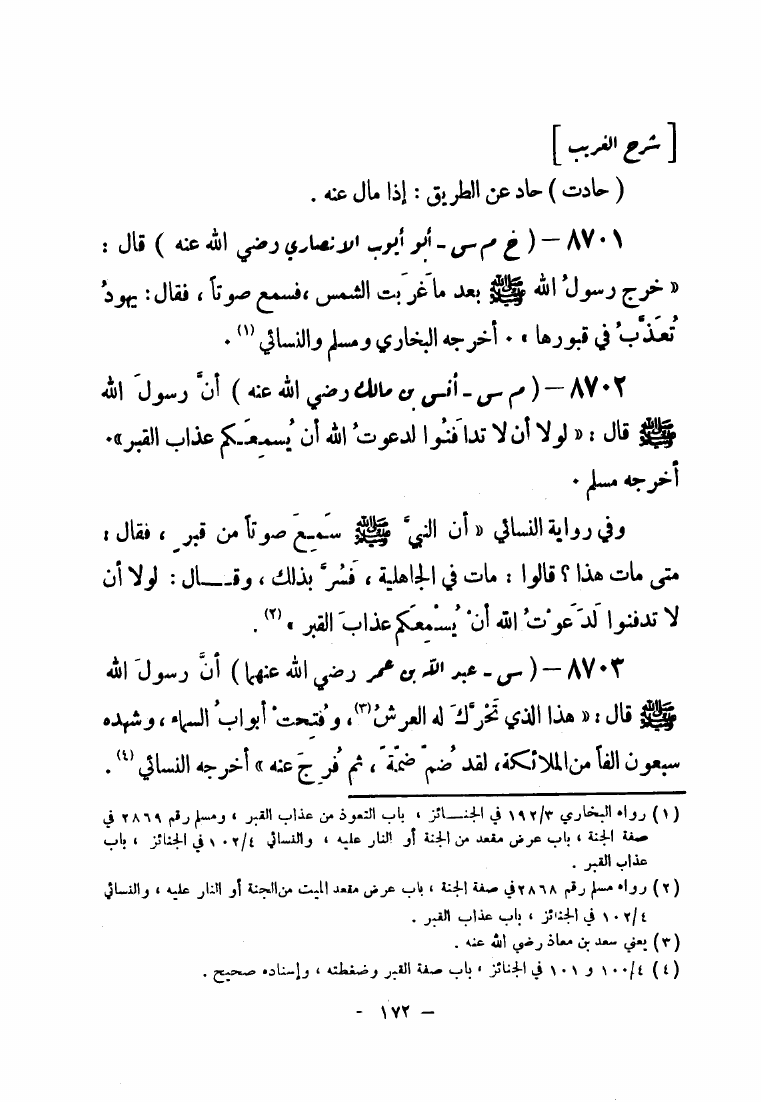 [ شرح الغريب ]
( حادت ) حاد عن الطريق : إذا مال عنه .
٨٧٠١ – ( خ م س - أبو أيوب الانصاري رضي الله عنه ) قال :
« خرج رسولُ الله ﷺ بعد ما غَرَبت الشمس ، فسمع صوتاً ، فقال : يهودُ
تُعَذَّبُ في قبورها » . أخرجه البخاري ومسلم والنسائي (١) .
٨٧٠٢ – ( م س - أنس بن مالك رضي الله عنه ) أنَّ رسولَ الله
ﷺ قال : « لولا أن لا تدافَنُوا لدعوتُ الله أن يُسمِعَكم عذاب القبر » .
أخرجه مسلم .
وفي رواية النسائي « أن النبيَّ ﷺ سَمِعَ صوتاً من قبرٍ ، فقال :
متى مات هذا ؟ قالوا : مات في الجاهلية ، فَسُرَّ بذلك ، وقال : لولا أن
لا تدفنوا لَدَعَوْتُ الله أنْ يُسْمِعَكم عذابَ القبر » (٢) .
٨٧٠٣ – ( س - عبد الله بن عمر رضي الله عنهما ) أنَّ رسولَ الله
ﷺ قال : « هذا الذي تَحَرَّكَ له العرشُ (٣) ، وفُتِحتْ أبوابُ السماء ، وشهده
سبعون الفاً من الملائكة ، لقد ضُمَّ ضَمَّةً ، ثم فُرِجَ عنه » أخرجه النسائي (٤) .
(١) رواه البخاري ١٩٢/٣ في الجنائز ، باب التعوذ من عذاب القبر ، ومسلم رقم ٢٨٦٩ في
صفة الجنة ، باب عرض مقعد من الجنة أو النار عليه ، والنسائي ١٠٢/٤ في الجنائز ، باب
عذاب القبر .
(٢) رواه مسلم رقم ٢٨٦٨ في صفة الجنة ، باب عرض مقعد الميت من الجنة أو النار عليه ، والنسائي
١٠٢/٤ في الجنائز ، باب عذاب القبر .
(٣) يعني سعد بن معاذ رضي الله عنه .
(٤) ١٠٠/٤ و ١٠١ في الجنائز ، باب صفة القبر وضغطته ، وإسناده صحيح .
– ١٧٢ -